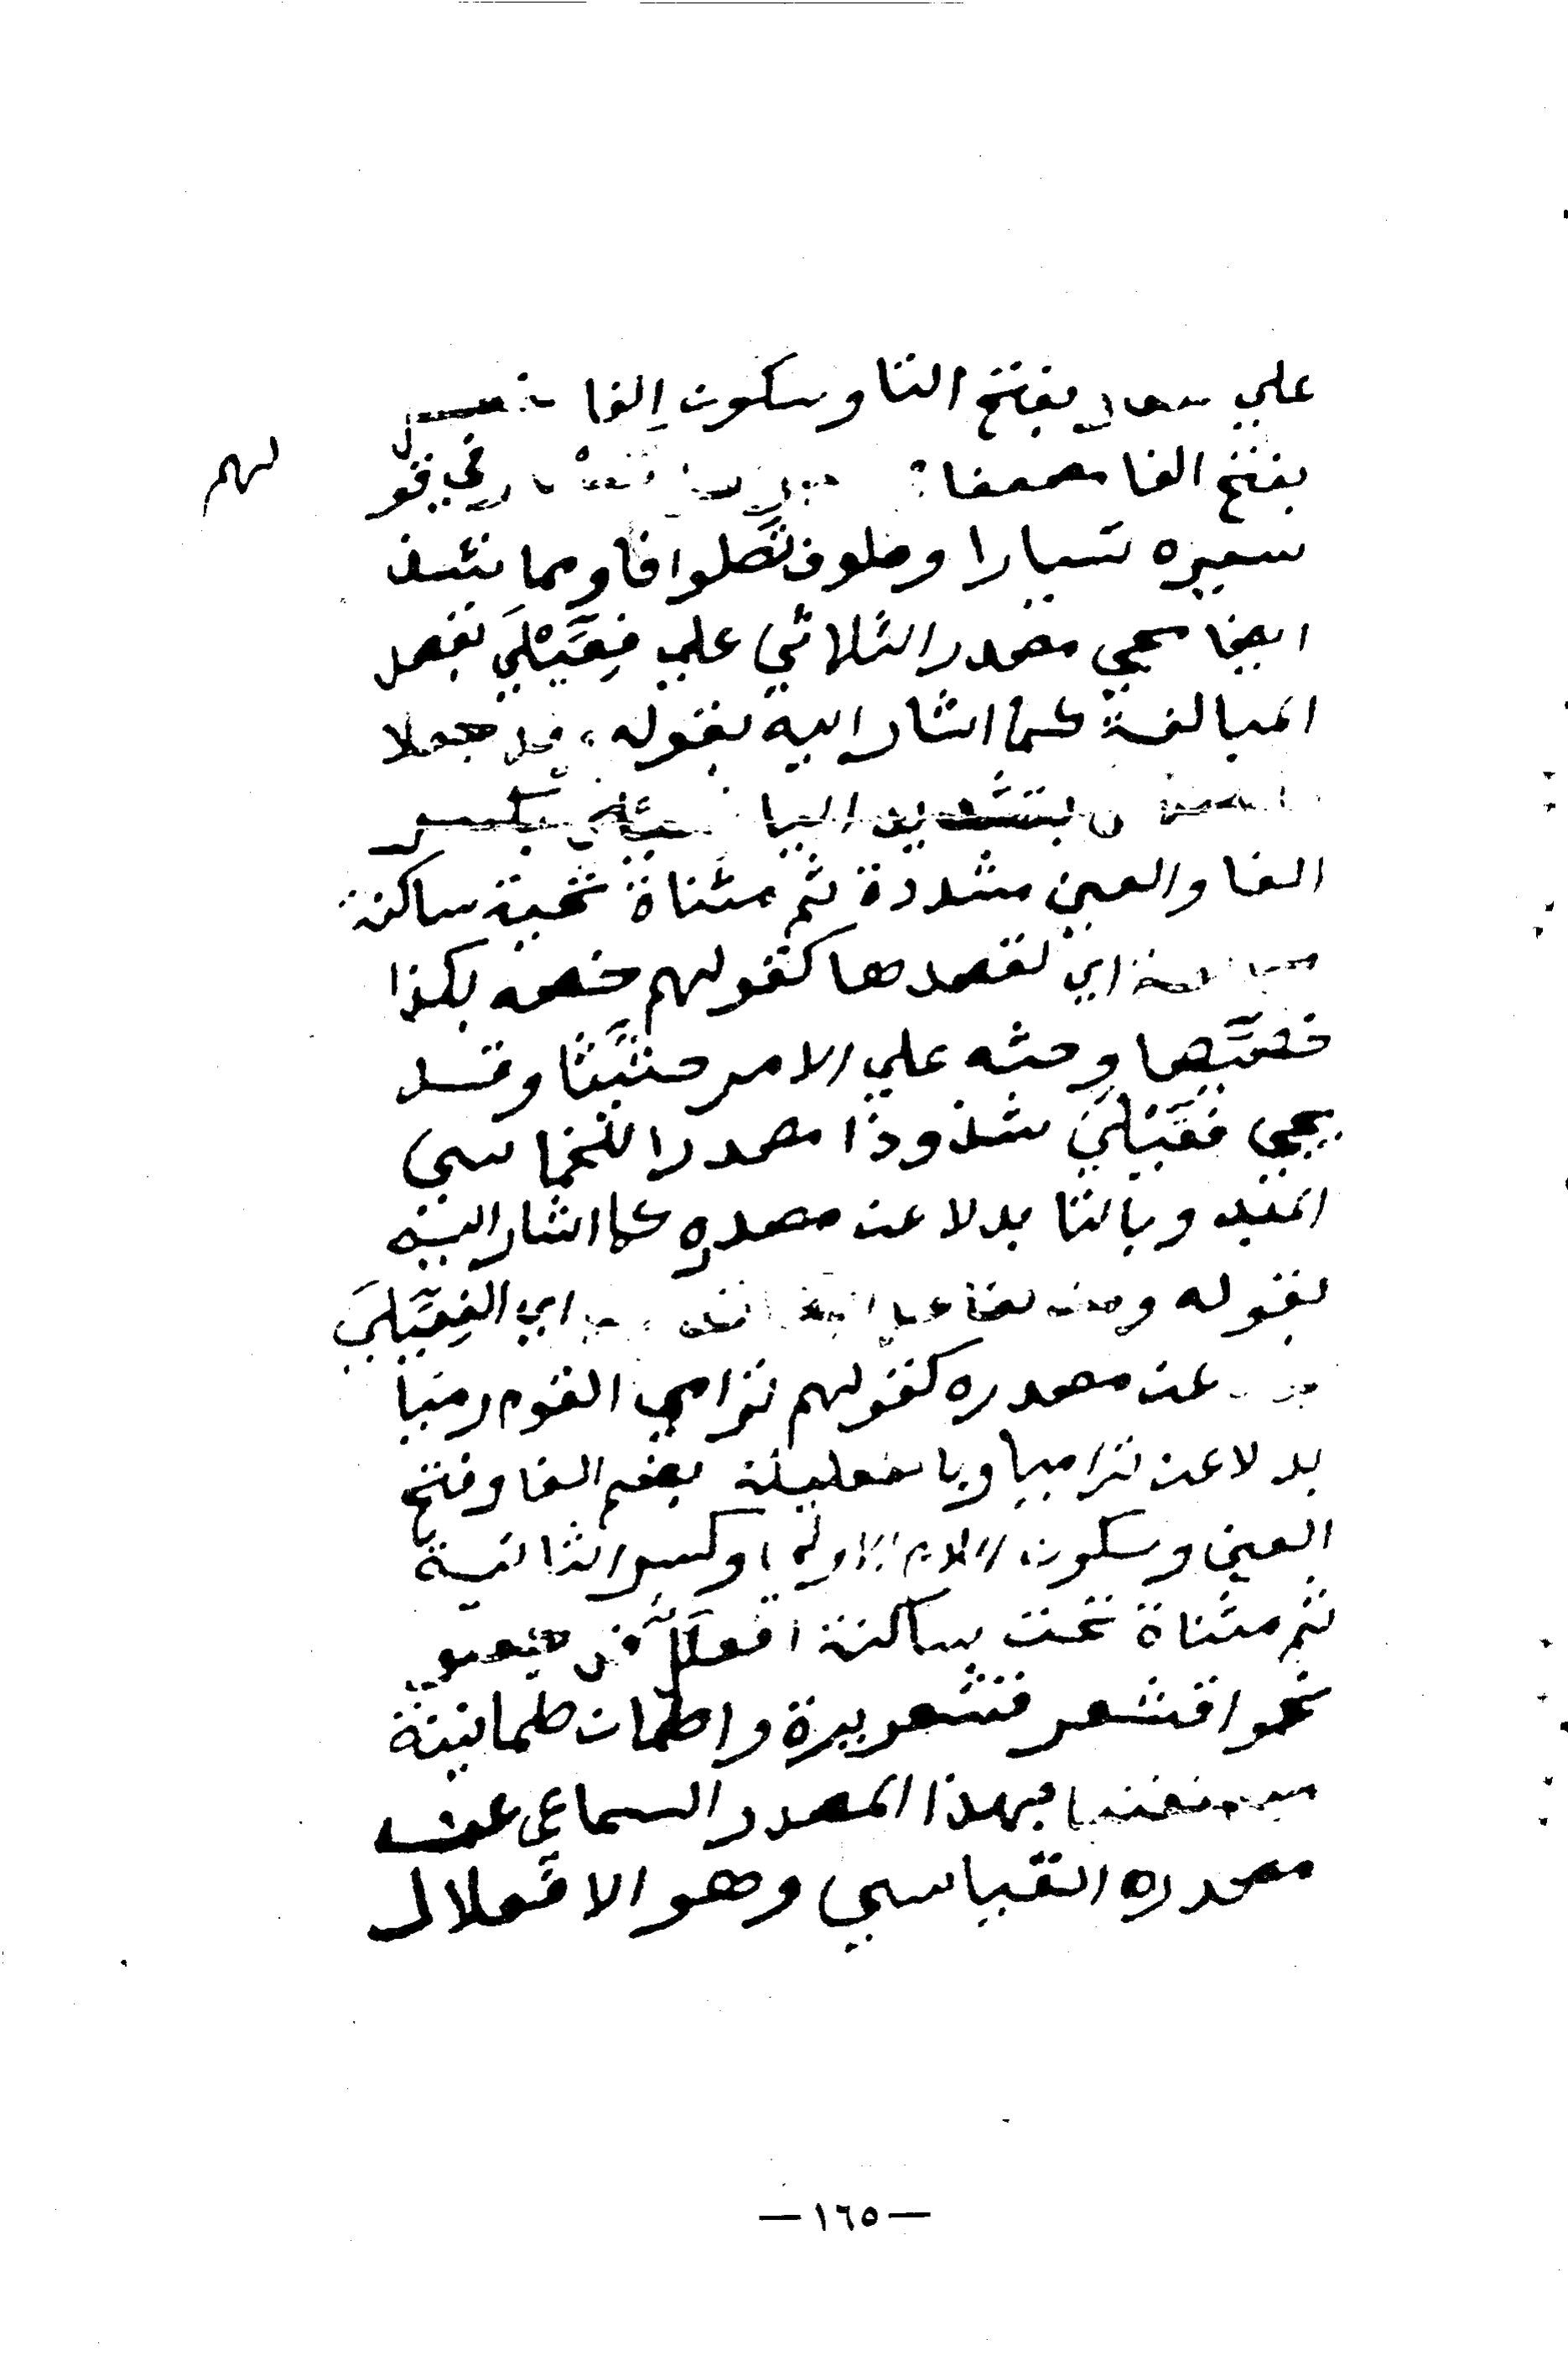 علي تفعال بفتح التا وسكون الفا
بفتح الفا مضعفا في قو
لهم
سيره تسيارا وطوف تَّطوافا ومما يشذ
ايضا مجي مصدر الثلاثي علي فِعَّيْلَي بقصد
المبالغة كما اشار اليه بقوله وقد جعلا
بتشديد اليا بكسر
الفا والعين مشددة ثم مثناة تحية ساكنة
مبالغة اي لقصدها كقولهم خصه بكذا
خصِّيصا وحثه علي الامر حثِّيثا وقد
يجي فِعَّيْلَي شذوذا مصدرا للخماسي
المبد وبالتا بدلا عن مصدره كما اشار اليه
بقوله ومن تفاعل اي الفِعِّيْلَي
عن مصدره كقولهم ترامي القوم رميا
بدلا عن تراميا وبالفعليلة بضم الفا وفتح
العين وسكون اللام الاولي وكسر الثانية
ثم مثناة تحت ساكنة افعلَلَّ
نحو اقشعر قشعريرة واطمان طمانينة
مستغنيا بهذا المصدر السماعي عن
مصدره القياسي وهو الافعلال
— ١٦٥ —